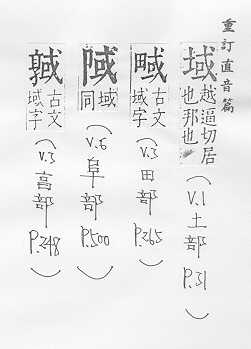 重訂直音篇
域 越逼切居也邦也 (V.1 土部 P.31)
㽣 古文域字 (V.3 田部 P.265)
䧕 域同 (V.6 阜部 P.500)
古文域字 (V.3 㐭部 P.248)